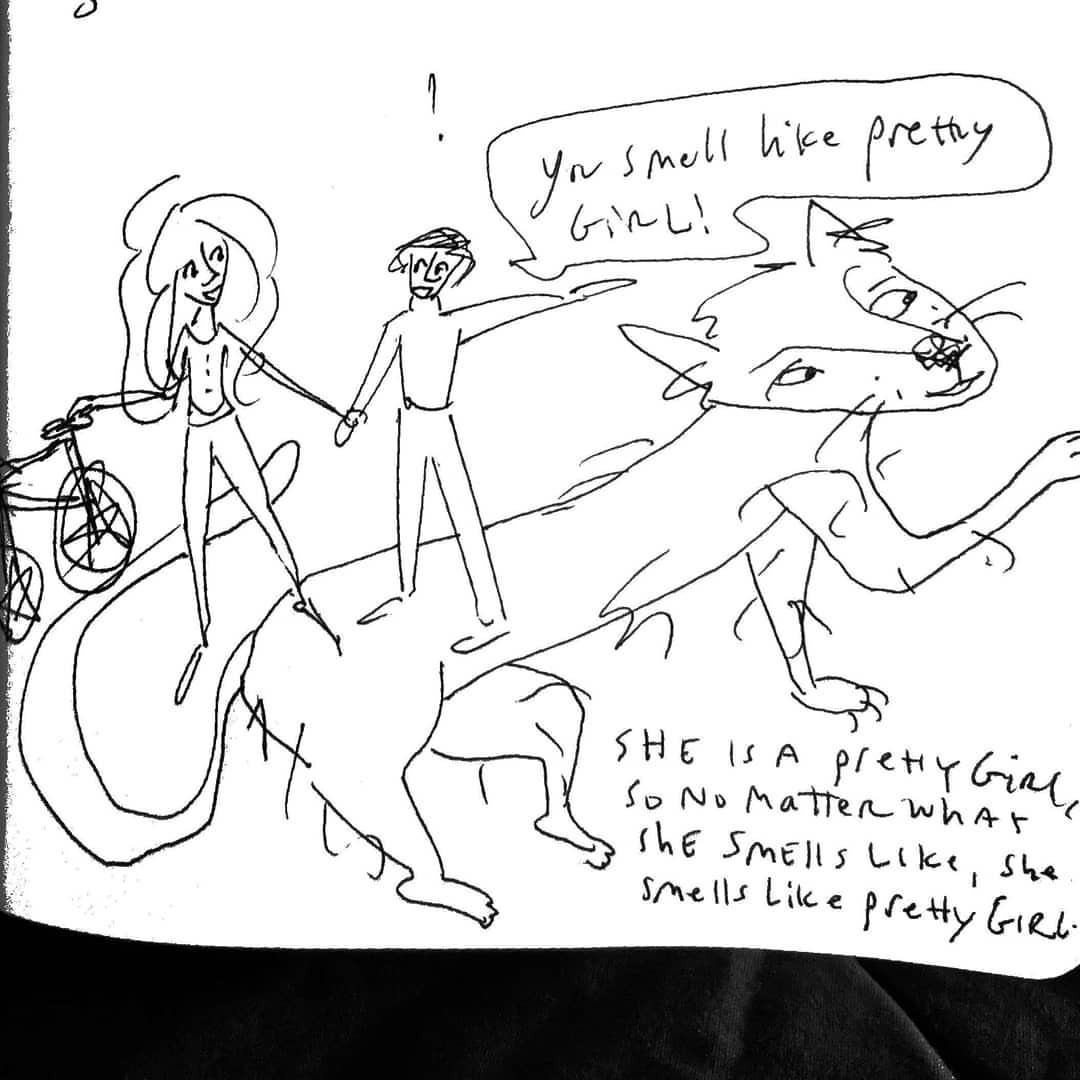 !
you smell like pretty
GIRL!
SHE IS A pretty Girl,
SO NO MATTER WHAT
ShE SMElls LIKe, she
smells Like pretty GIRL.